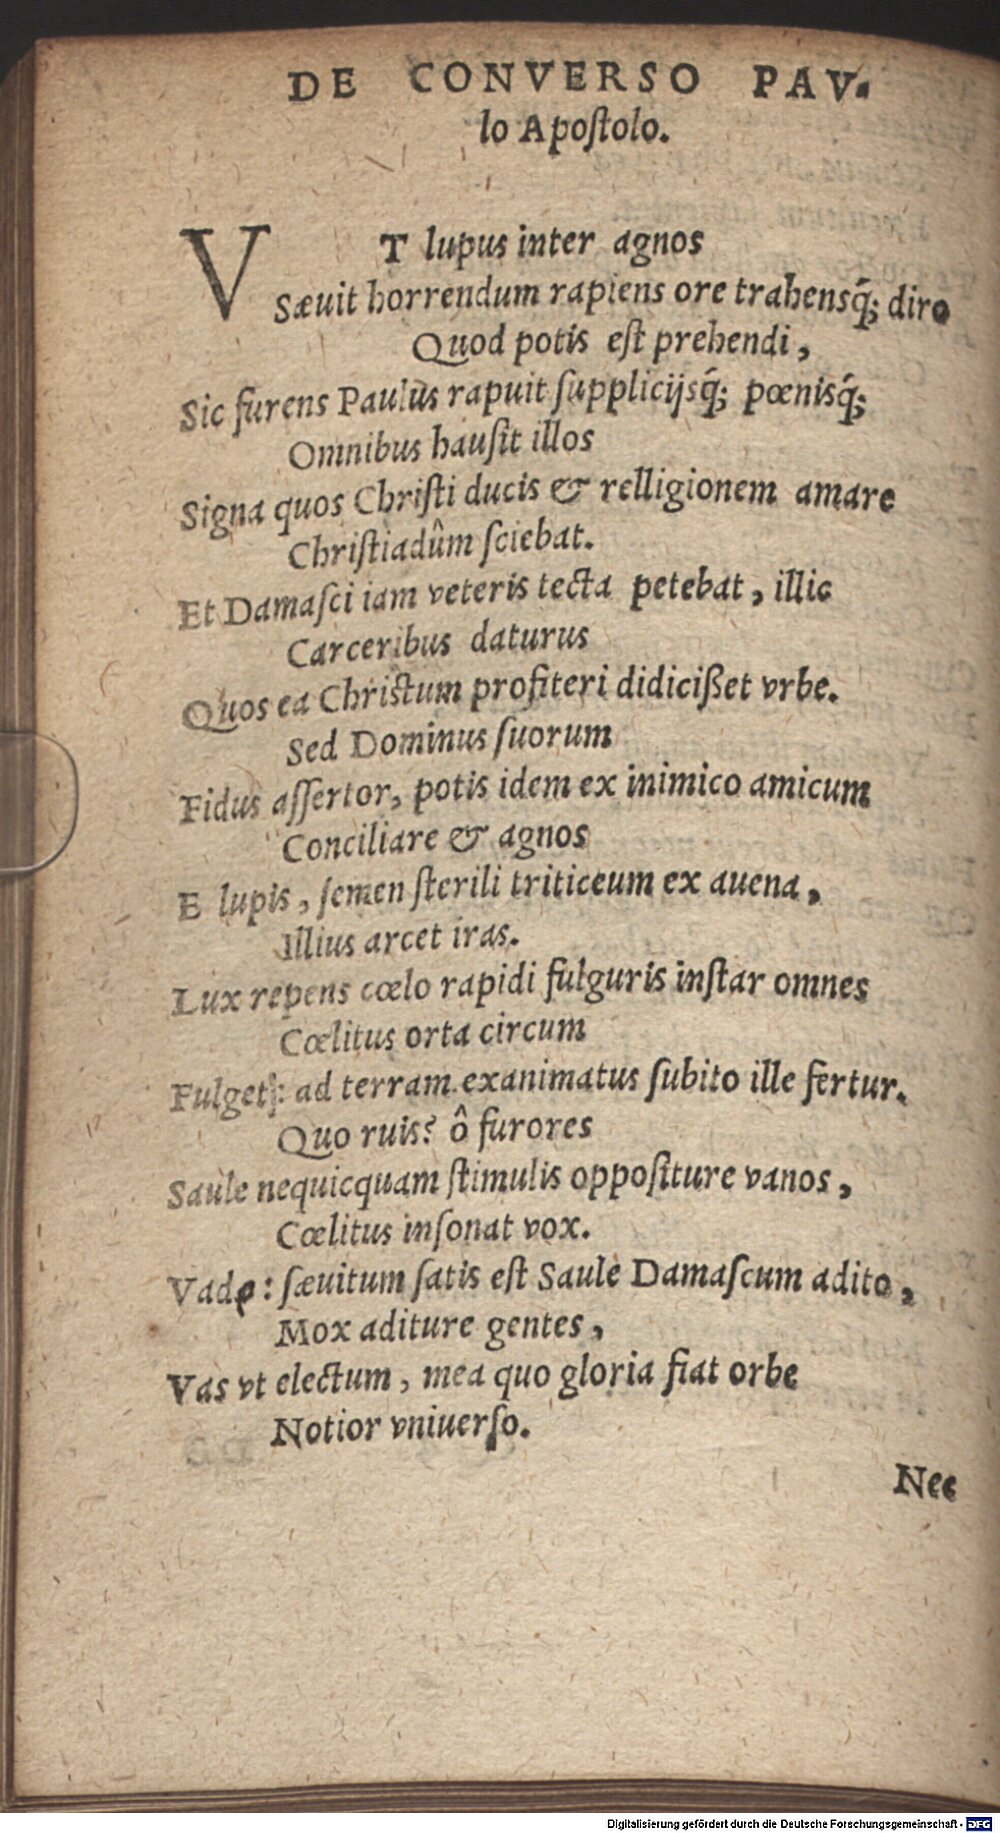 DE CONVERSO PAV-
lo Apoſtolo.
VT lupus inter agnos
Sæuit horrendum rapiens ore trahensq́; diro
Quod potis eſt prehendi,
Sic furens Paulus rapuit ſupplicijsq́; pœnisq́;
Omnibus hauſit illos
Signa quos Chriſti ducis & relligionem amare
Chriſtiadûm ſciebat.
Et Damaſci iam veteris tecta petebat, illic
Carceribus daturus
Quos ea Chriſtum profiteri didicißet vrbe.
Sed Dominus ſuorum
Fidus aſſertor, potis idem ex inimico amicum
Conciliare & agnos
E lupis, ſemen ſterili triticeum ex auena,
Illius arcet iras.
Lux repens cœlo rapidi fulguris inſtar omnes
Cœlitus orta circum
Fulget: ad terram exanimatus ſubito ille fertur.
Quo ruis? ô furores
Saule nequicquam ſtimulis oppoſiture vanos,
Cœlitus inſonat vox.
Vade: ſæuitum ſatis eſt Saule Damaſcum adito,
Mox aditure gentes,
Vas vt electum, mea quo gloria fiat orbe
Notior vniuerſo.
Nec
Digitalisierung gefördert durch die Deutsche Forschungsgemeinschaft - DFG